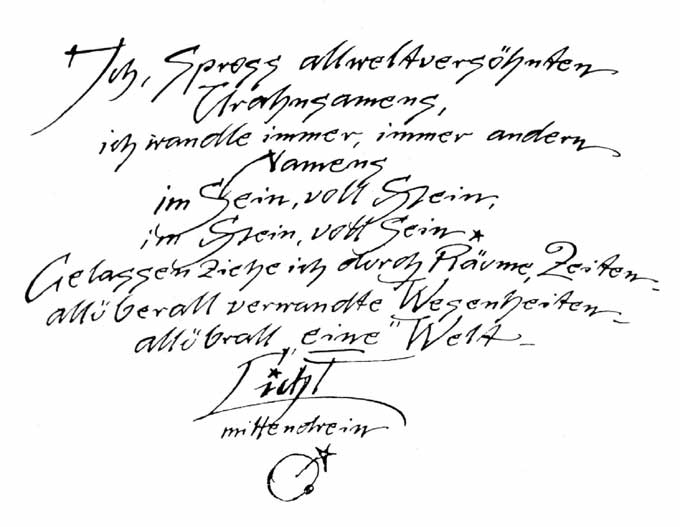 Ich, Spross allweltversöhnten
Urahnsamens,
ich wandle immer, immer andern
Namens
im Sein, voll Stein,
im Stein, voll Sein *
Gelassen ziehe ich durch Räume, Zeiten –
allüberall verwandte Wesenheiten –
allübrall „eine“ Welt –
Licht
mittendrein